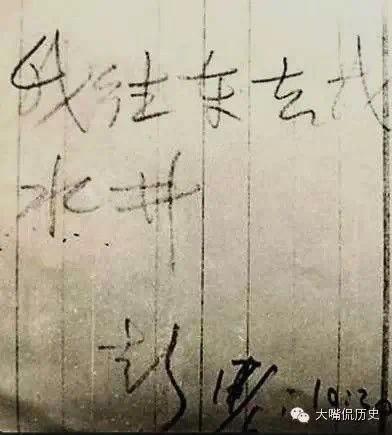 我往东去找
水井
彭 10:30
大嘴侃历史